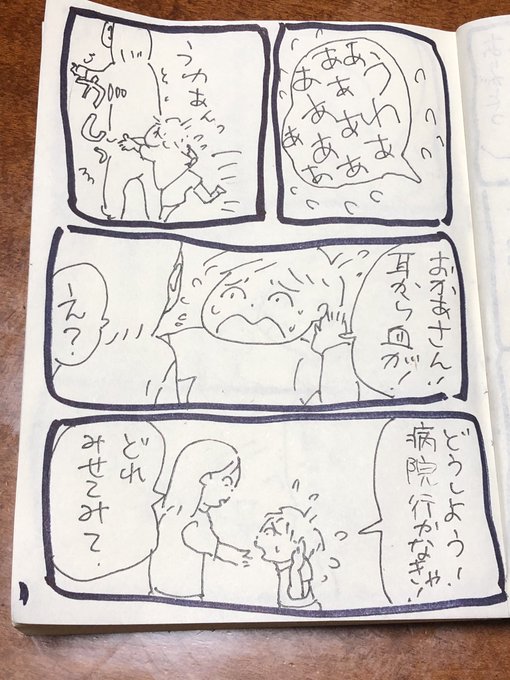 うわぁ
あぁぁぁ
あぁぁぁぁ
ぁ
うわあんっ
おかあさん!!
耳から血が!
え?
どうしよう!
病院行かなきゃ!!
どれ
みせてみて